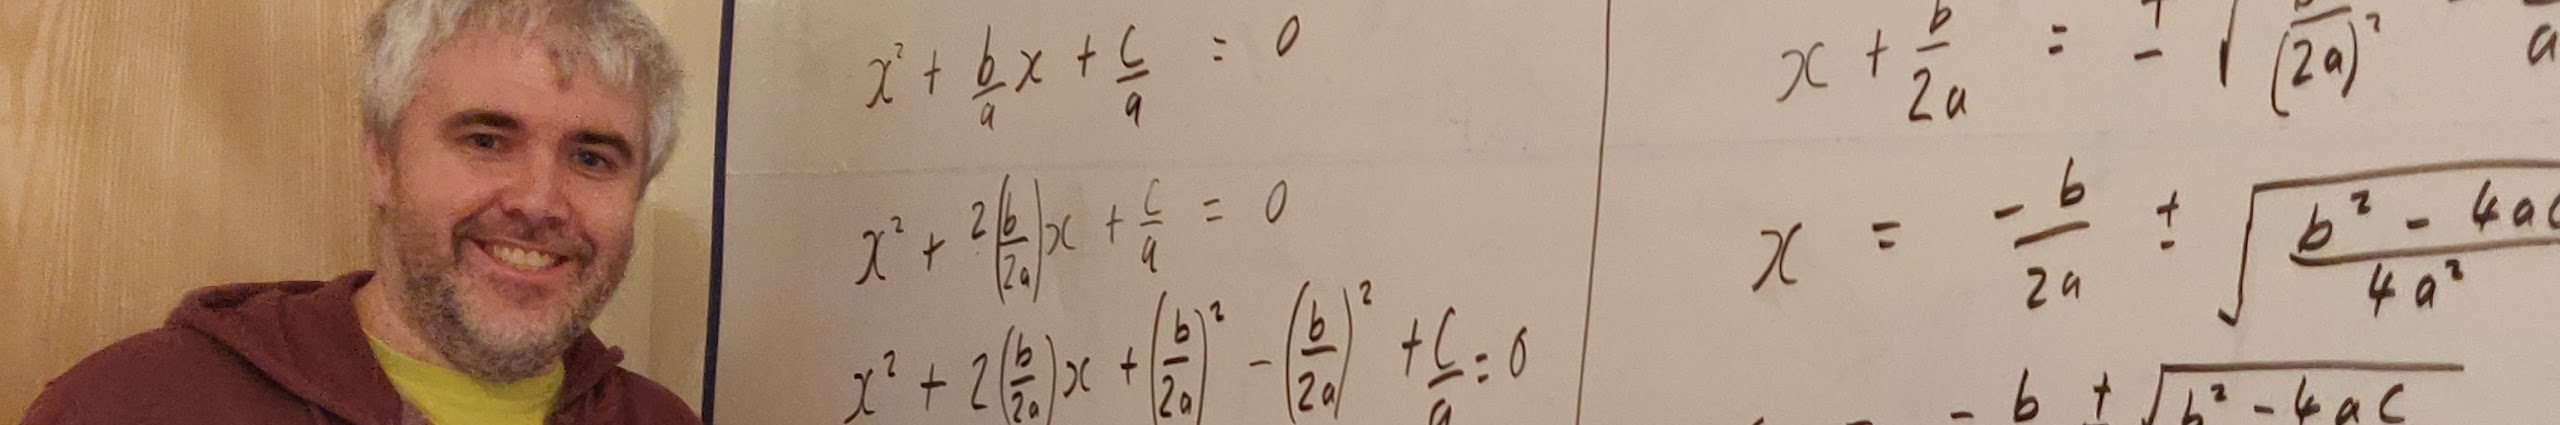 x² + b/a x + c/a = 0
x² + 2(b/2a)x + c/a = 0
x² + 2(b/2a)x + (b/2a)² - (b/2a)² + c/a = 0
x + b/2a = ± √ b/(2a)² - a
x = -b/2a ± √ b² - 4ac/4a²
- b ± √b² - 4ac